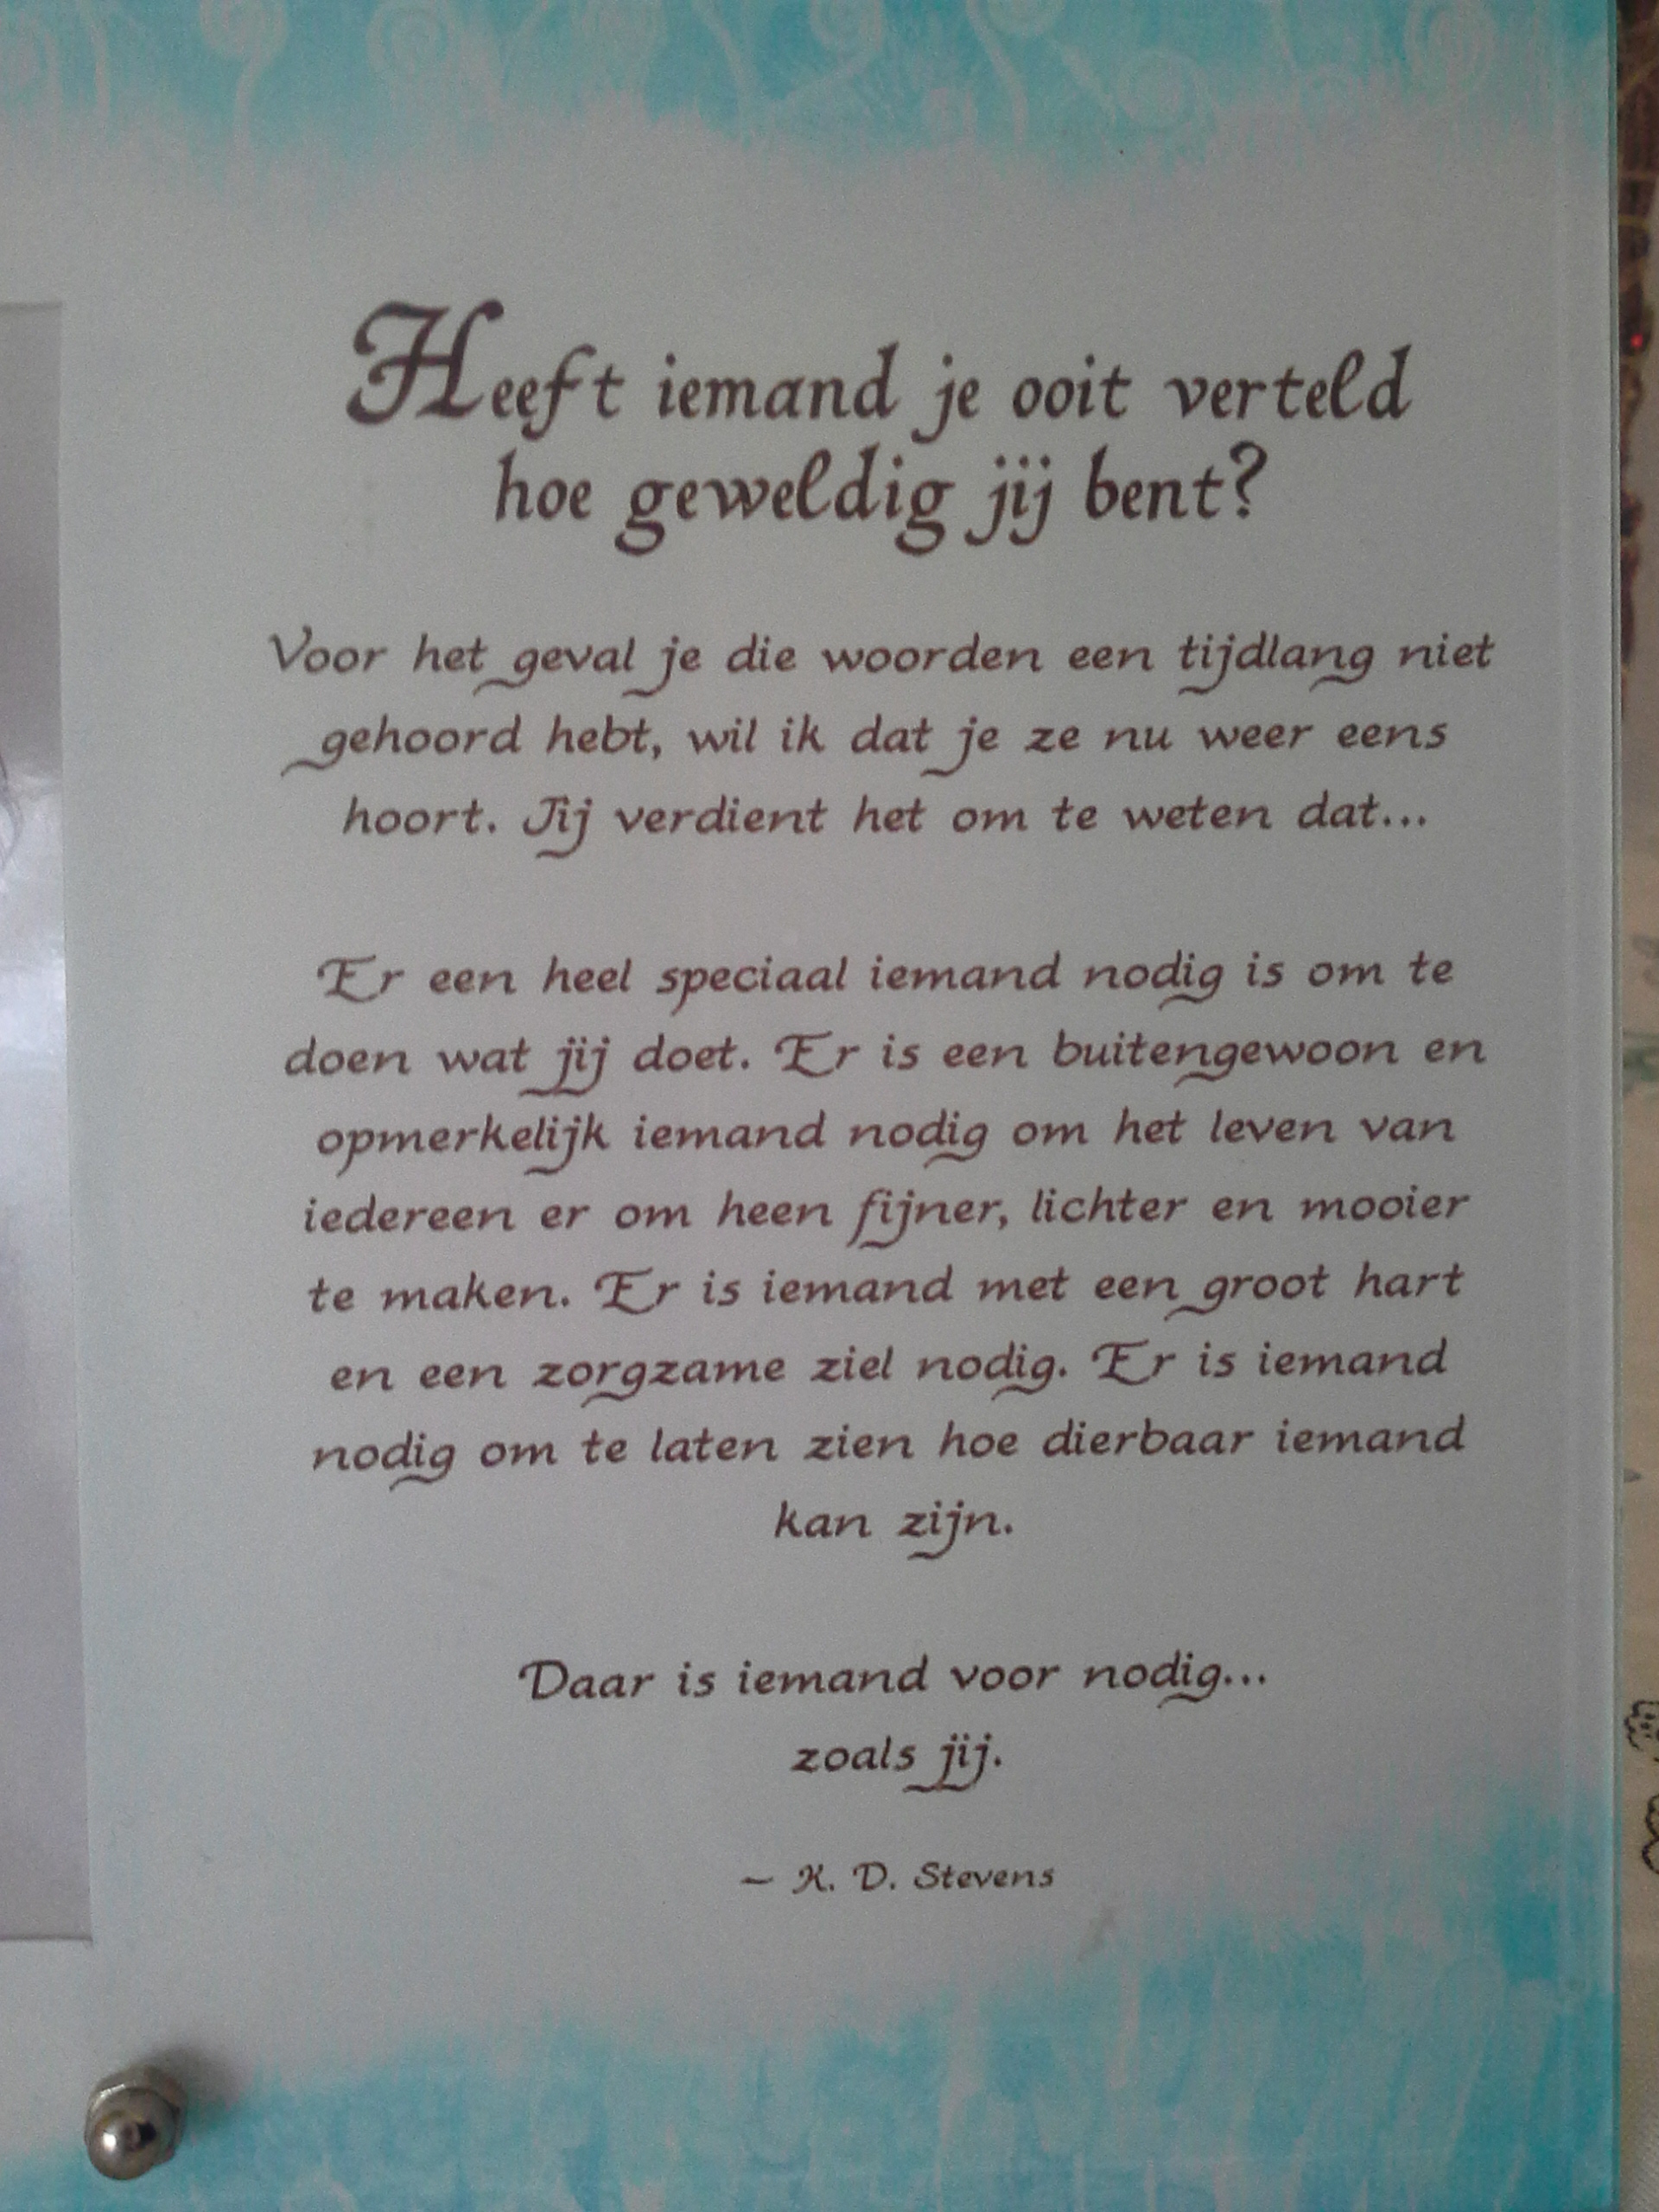 Heeft iemand je ooit verteld
hoe geweldig jij bent?
Voor het geval je die woorden een tijdlang niet
gehoord hebt, wil ik dat je ze nu weer eens
hoort. Jij verdient het om te weten dat...
Er een heel speciaal iemand nodig is om te
doen wat jij doet. Er is een buitengewoon en
opmerkelijk iemand nodig om het leven van
iedereen er om heen fijner, lichter en mooier
te maken. Er is iemand met een groot hart
en een zorgzame ziel nodig. Er is iemand
nodig om te laten zien hoe dierbaar iemand
kan zijn.
Daar is iemand voor nodig...
zoals jij.
– K. D. Stevens